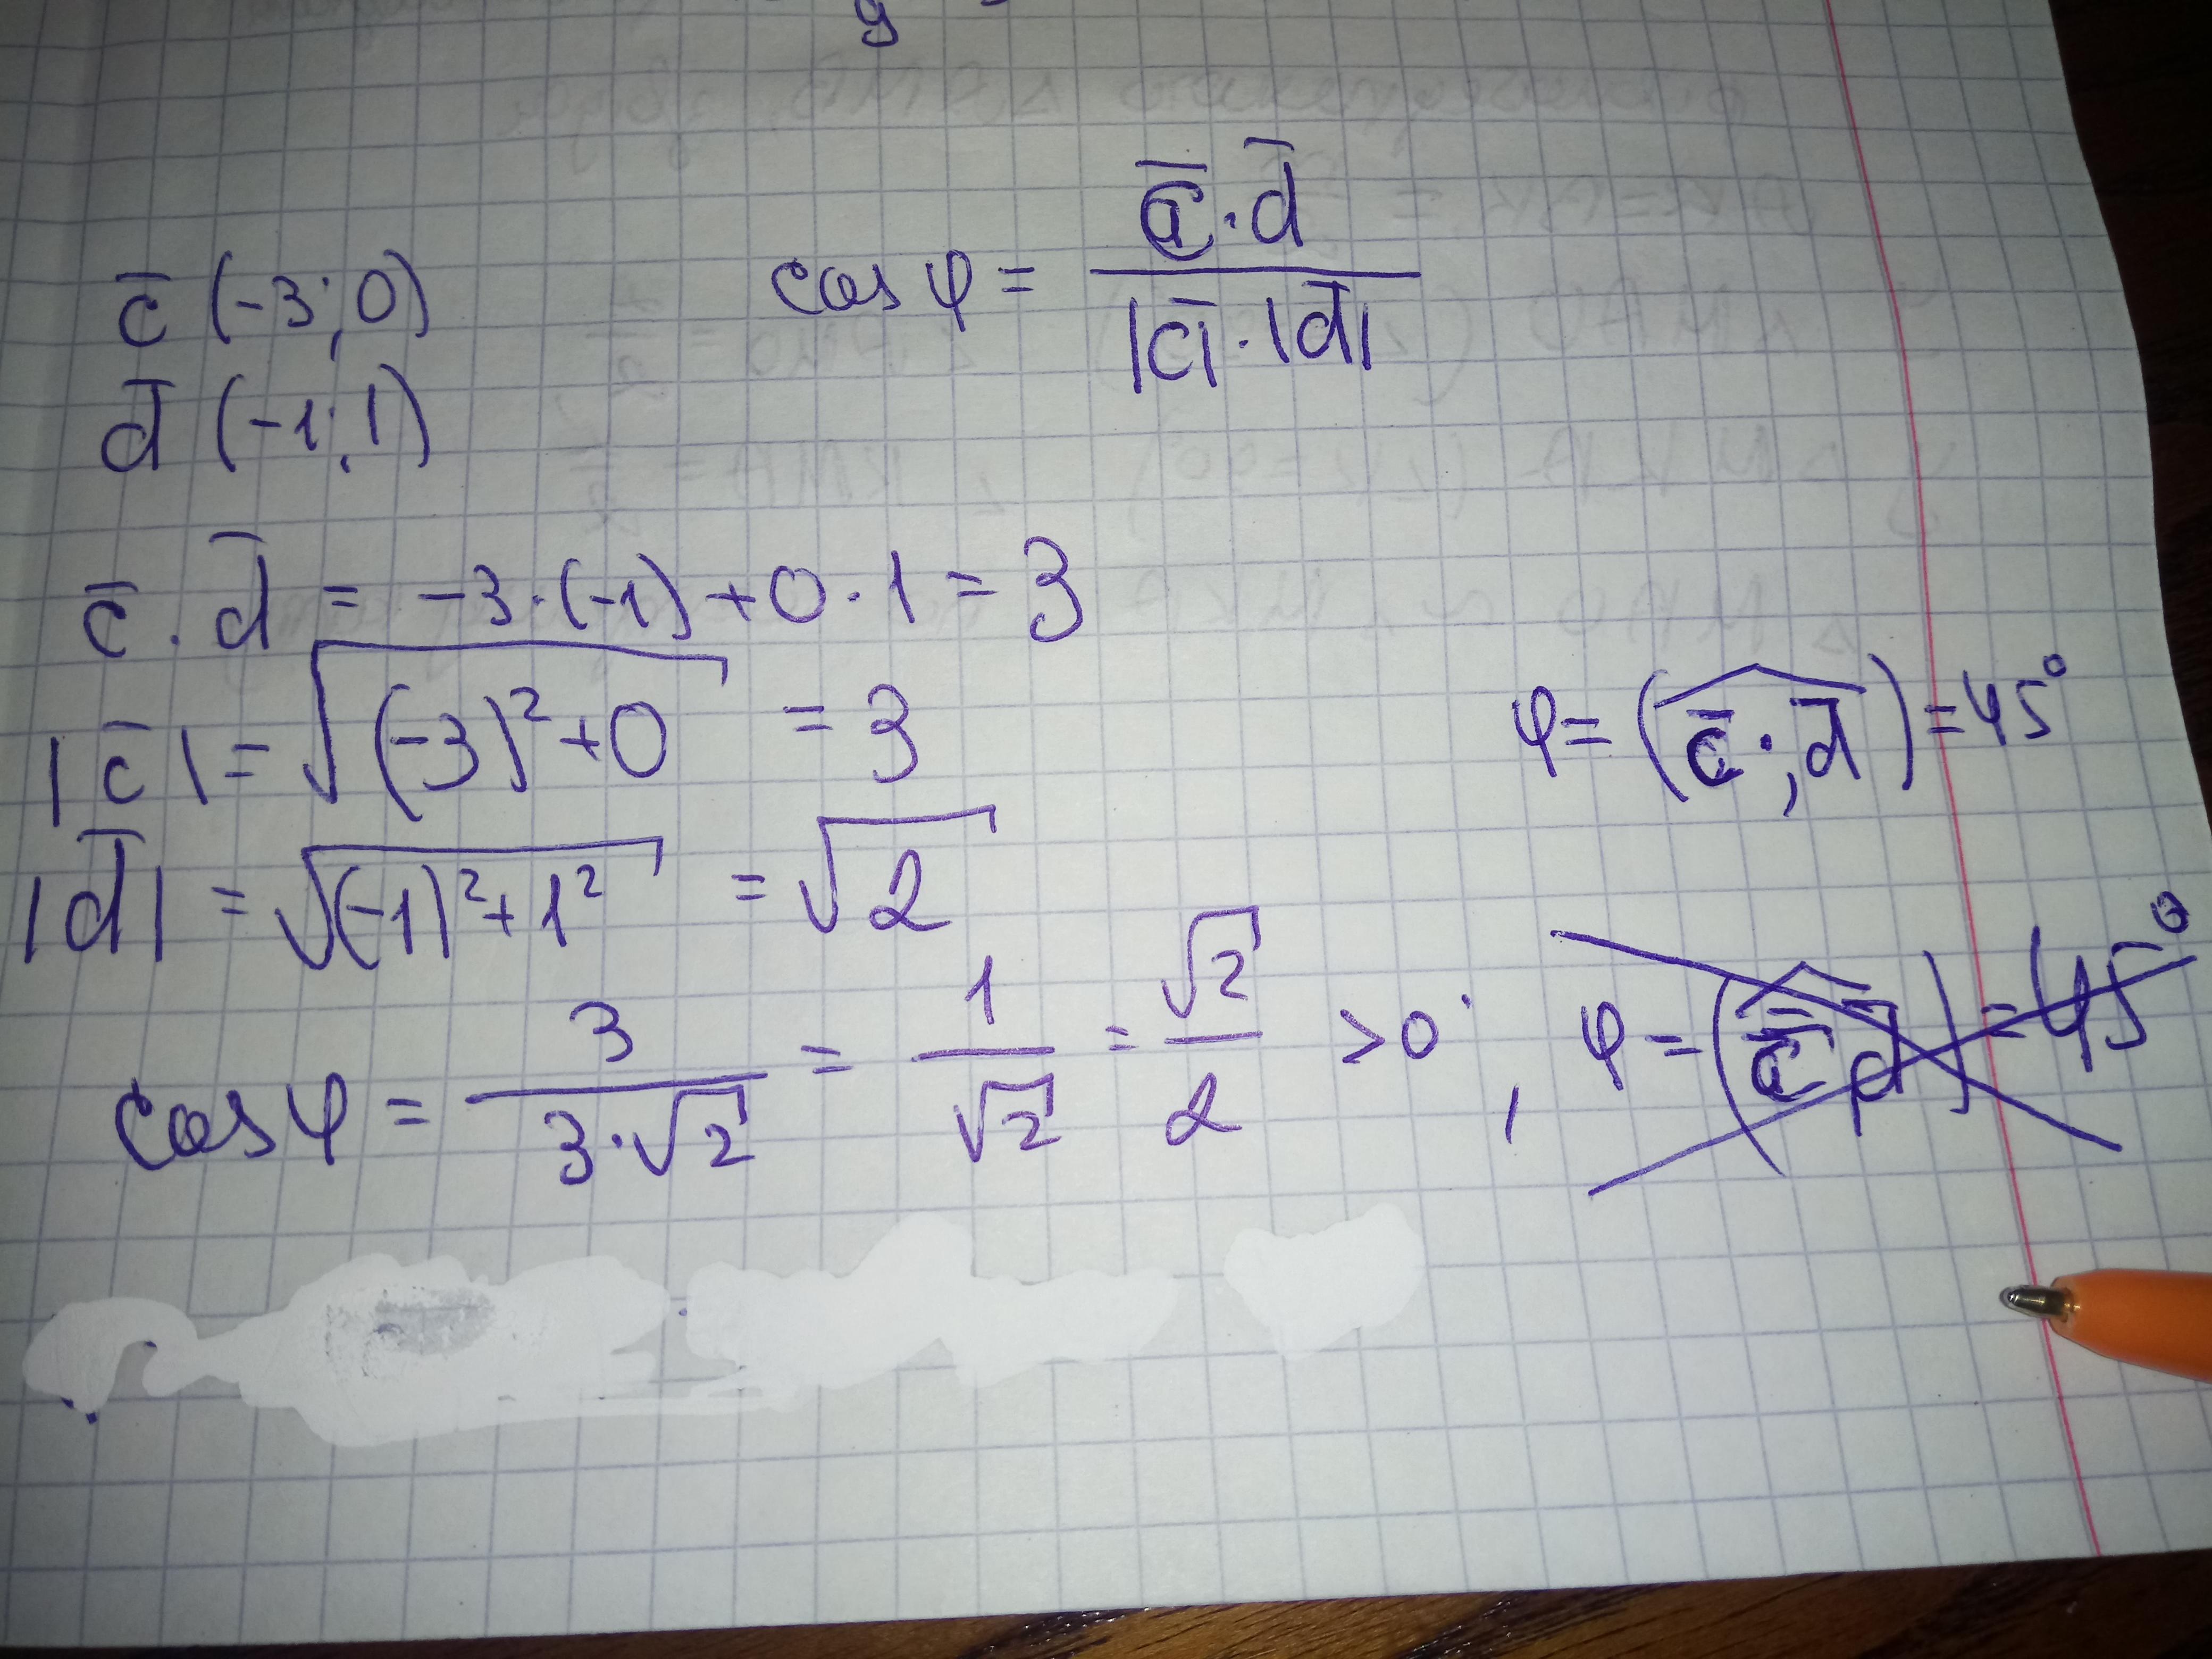 c̄ (-3; 0)
d̄ (-1; 1)
cos φ = (c̄ · d̄) / (|c̄| · |d̄|)
c̄ · d̄ = -3 · (-1) + 0 · 1 = 3
|c̄| = √((-3)² + 0) = 3
|d̄| = √((-1)² + 1²) = √2
cos φ = 3 / (3 · √2) = 1 / √2 = √2 / 2 > 0, φ = (c̄ d̄) = 45°
φ = (c̄ ; d̄) = 45°